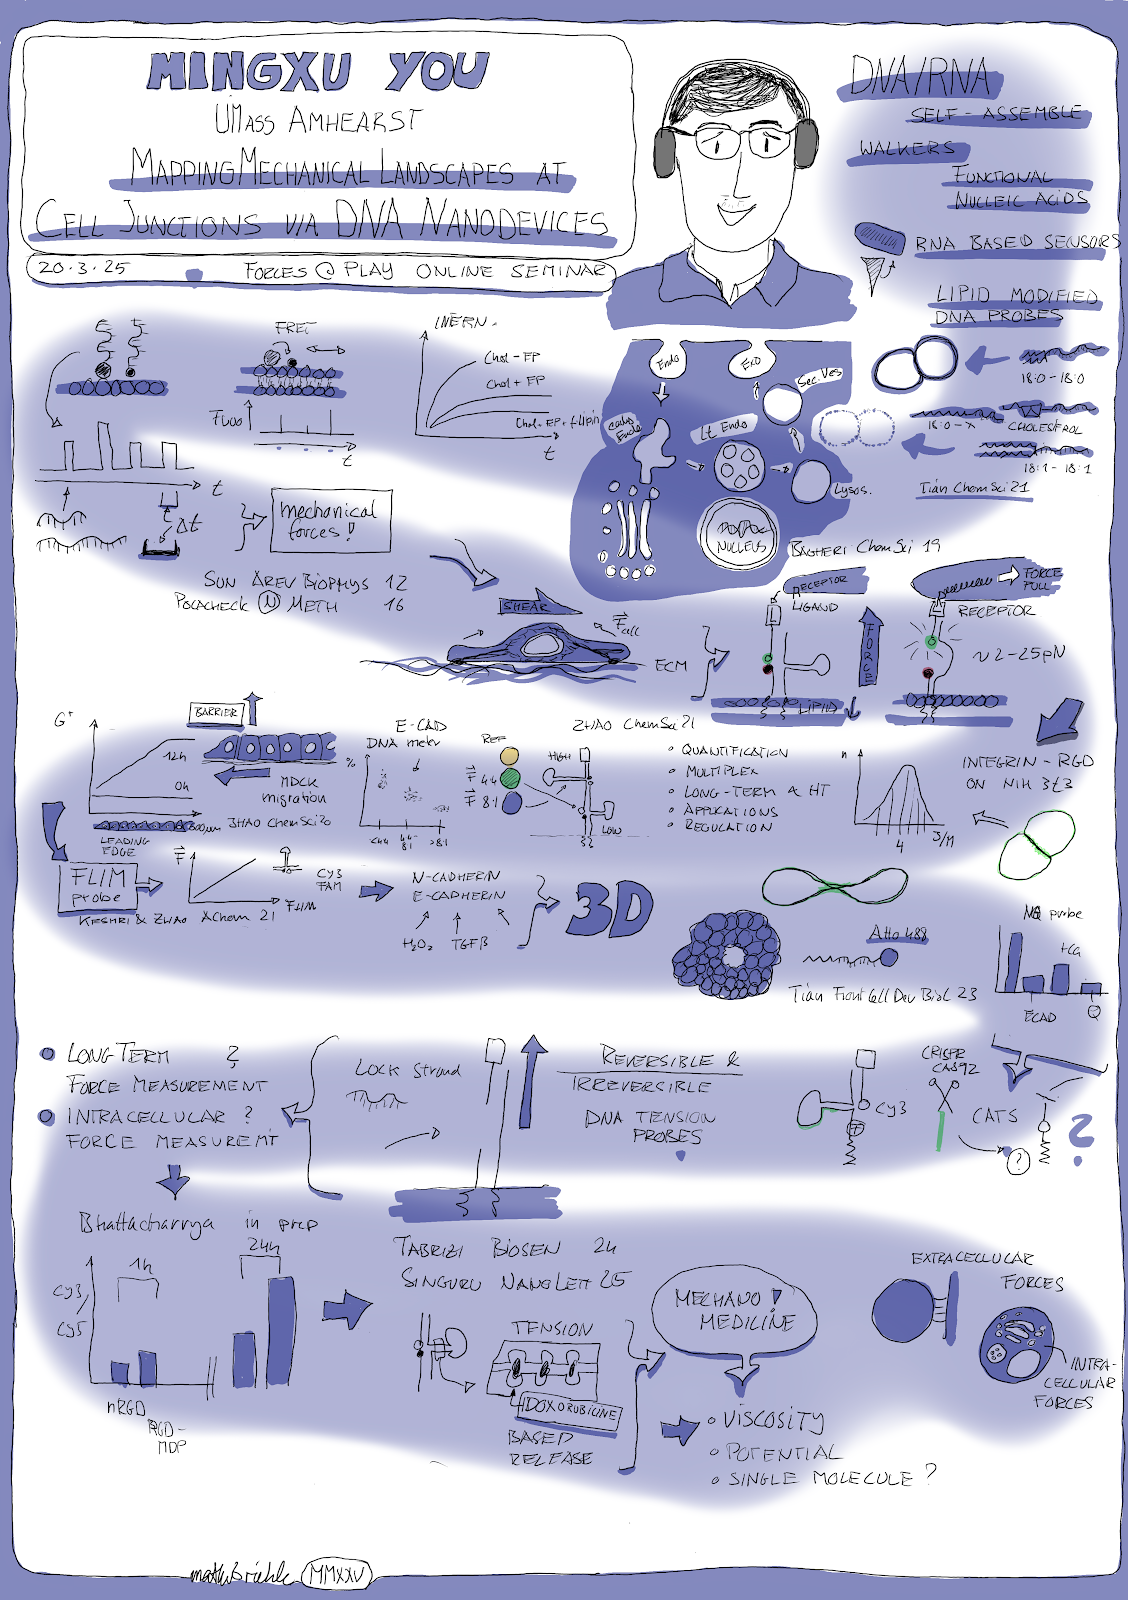 MINGXU YOU
UMASS AMHEARST
MAPPING MECHANICAL LANDSCAPES AT
CELL JUNCTIONS VIA DNA NANODEVICES
20.3.25
FORCES @ PLAY ONLINE SEMINAR
DNA/RNA
SELF-ASSEMBLE
WALKERS
FUNCTIONAL
NUCLEIC ACIDS
RNA BASED SENSORS
LIPID MODIFIED
DNA PROBES
18:0-18:0
18:0-X
CHOLESTROL
18:1-18:1
Tian ChemSci 21
FRET
Fluo
t
INTERN.
Chol-FP
Chol+FP
Chol-FP+Filipin
t
t
Δt
mechanical
forces!
Endo
Exo
Sec. Ves
early
Endo
Lt Endo
Lysos.
NUCLEUS
BAGHERI ChemSci 19
SUN AREV BIOPHYS 12
POLACHECK N METH 16
SHEAR
F cell
ECM
RECEPTOR
LIGAND
L
FORCE
LIPID
FORCE
PULL
RECEPTOR
~2-25pN
ZHAO ChemSci 21
G+
12h
0h
BARRIER
MDCK
migration
800µm
ZHAO ChemSci 20
LEADING
EDGE
E-CAD
DNA meter
%
<4.4
4.4
8.1
>8.1
REF
F 4.4
F 8.1
HIGH
LOW
QUANTIFICATION
MULTIPLEX
LONG-TERM & HT
APPLICATIONS
REGULATION
n
4
INTEGRIN-RGD
ON NIH 3T3
FLIM
probe
F
FLIM
CY3
FAM
KESHRI & ZHAO AChem 21
N-CADHERIN
E-CADHERIN
H2O2
TGFβ
3D
Atto 488
Tian Front Cell Dev Biol 23
probe
+Ca
ECAD
Q
LONG TERM ?
FORCE MEASUREMENT
INTRACELLULAR ?
FORCE MEASUREMT
LOCK Strand
REVERSIBLE &
IRREVERSIBLE
DNA TENSION
PROBES
CY3
CRISPR
CAS92
CATS
?
?
Bhattacharrya in prep
1h
24h
CY3/
CY5
nRGD
RGD-
MDP
TABRIZI BIOSEN 24
SINGURU NANO LETT 25
TENSION
DOXORUBICINE
BASED
RELEASE
MECHANO!
MEDICINE
VISCOSITY
POTENTIAL
SINGLE MOLECULE?
EXTRACELLULAR
FORCES
INTRA-
CELLULAR
FORCES
MMXXV